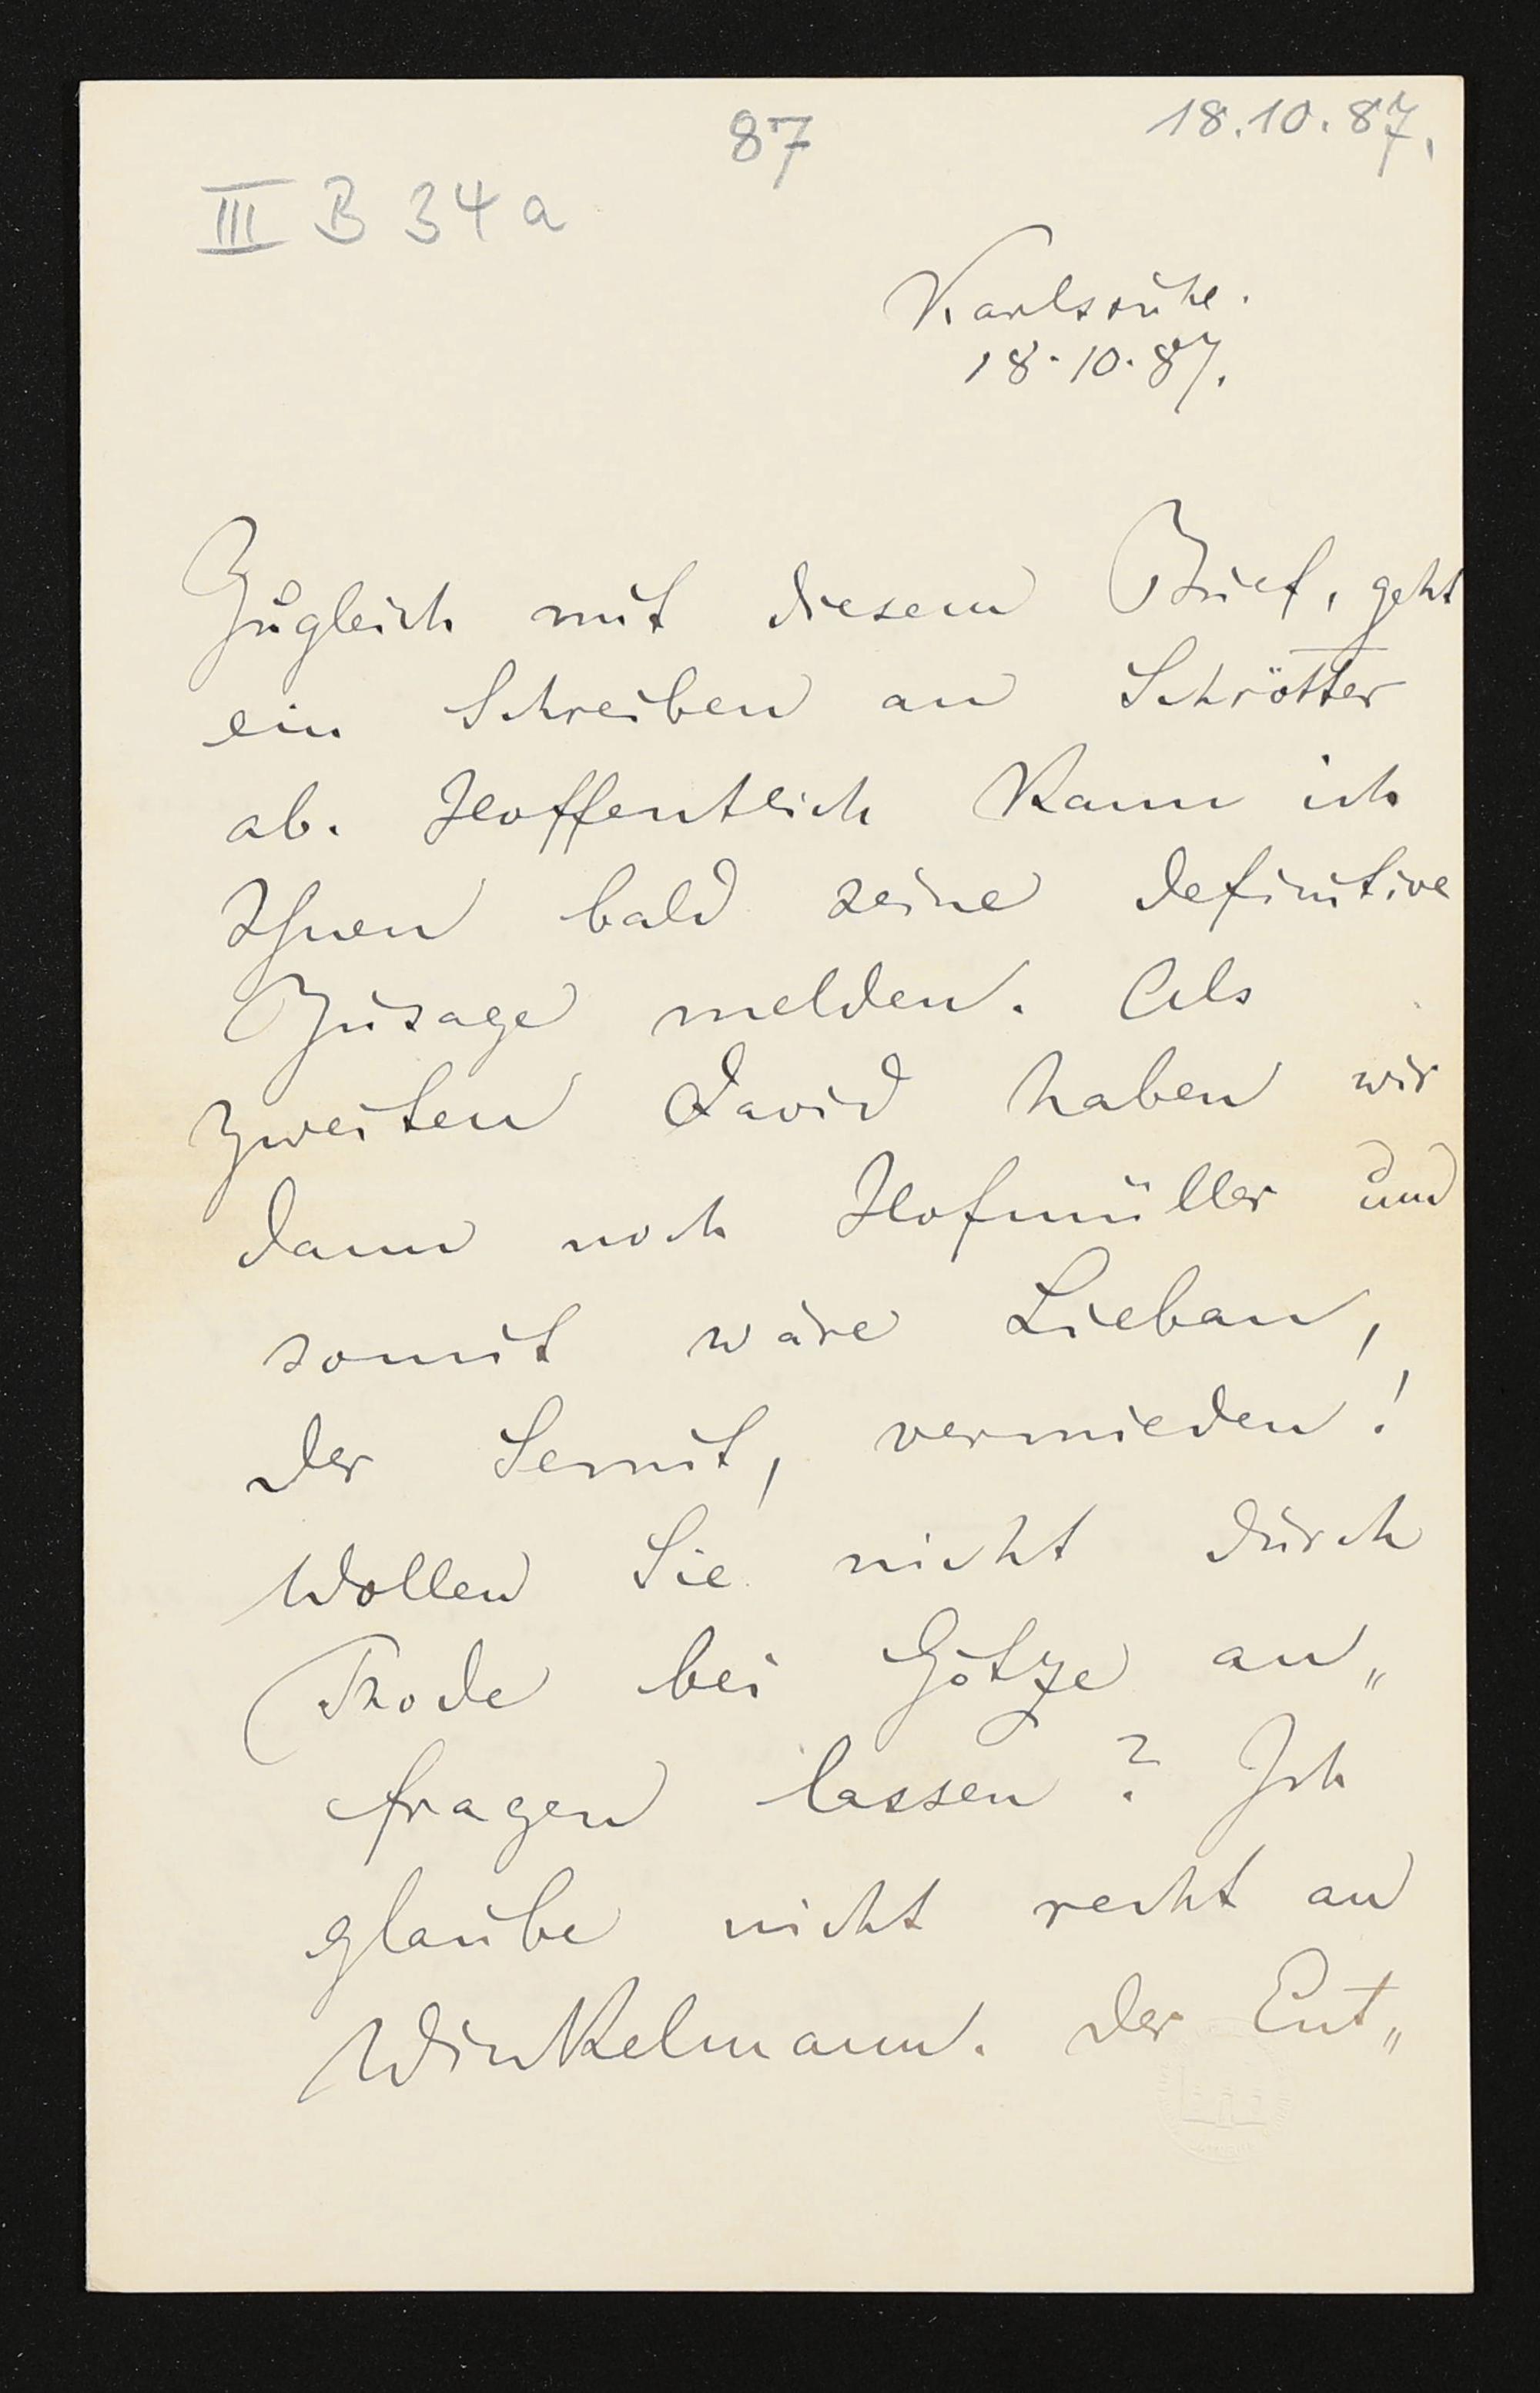 87
18.10.87.
III B 34a
Karlsruhe.
18.10.87.
Zugleich mit diesem Brief, geht
ein Schreiben an Schrötter
ab. Hoffentlich kann ich
Ihnen bald seine definitive
Zusage melden. Als
zweiten David haben wir
dann noch Hofmüller und
somit wäre Lieban,
der Semit, vermieden!
Wollen Sie nicht durch
Thode bei Götze an„
fragen lassen? Ich
glaube nicht recht an
Winkelmann. Der Ent„